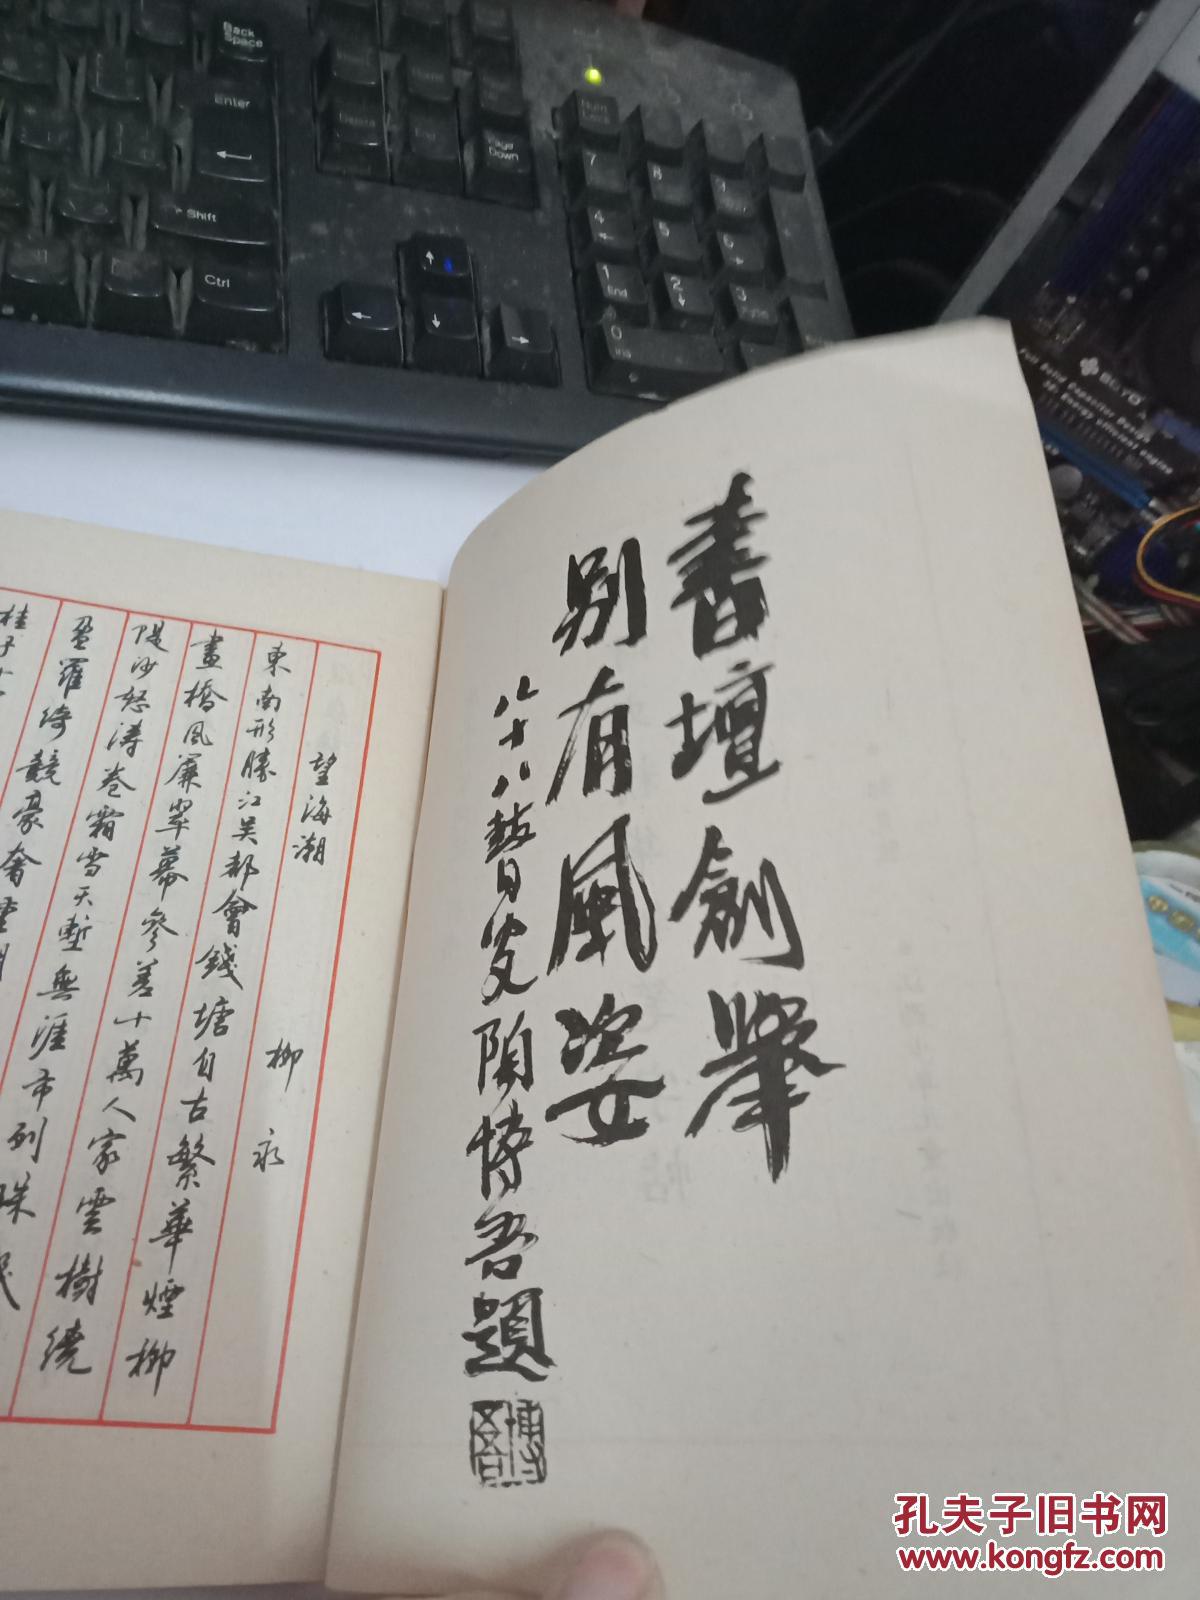 書壇創舉
別有風姿
八十八瞽目叟陶博吾題
博吾
望海潮 柳永
東南形勝江吴都會錢塘自古繁華煙柳
畫橋風簾翠幕參差十萬人家雲樹繞
堤沙怒濤卷霜雪天塹無涯市列珠
盈羅綺競豪奢
桂子
Back Space
Enter
Shift
Ctrl
Delete
End
Page Down
Num Lock
7
8
9
4
5
6
1 End
2
3 PgDn
0 Ins
Full Solid Capacitor Design
Energy efficient engine
孔夫子旧书网
www.kongfz.com